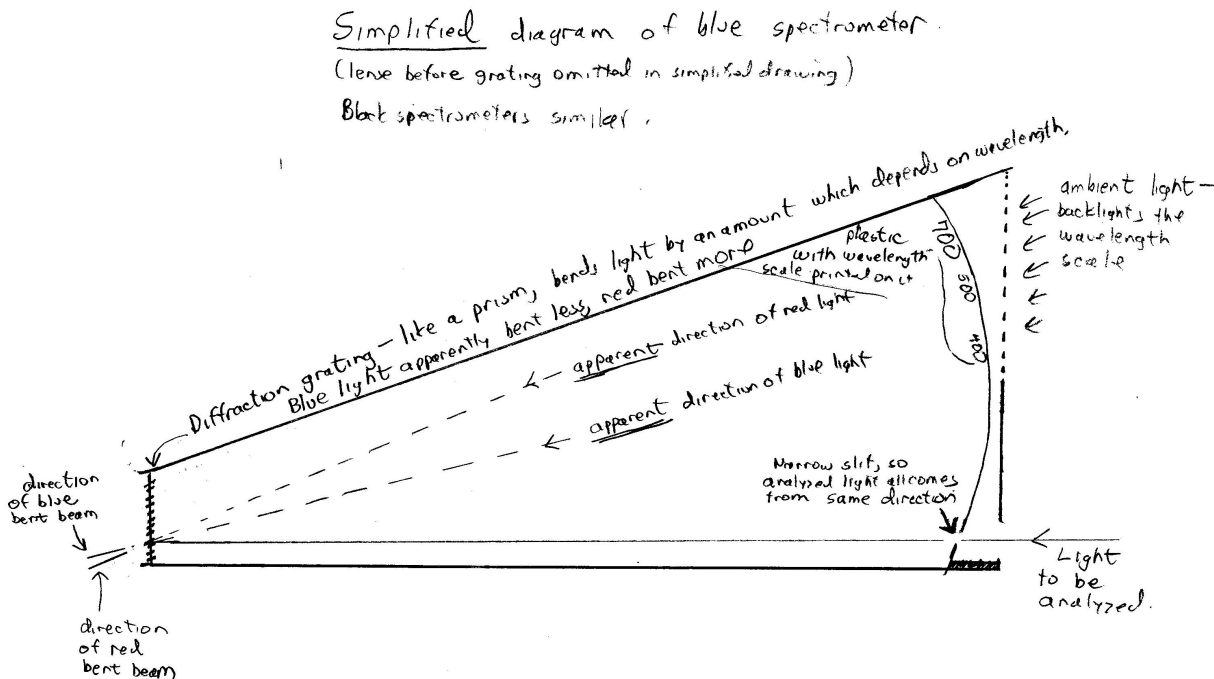 Simplified diagram of blue spectrometer.
(lense before grating omitted in simplified drawing)
Black spectrometers similar.
Diffraction grating - like a prism, bends light by an amount which depends on wavelength,
Blue light apparently bent less, red bent more
plastic
with wavelength
scale printed on it
700
500
400
ambient light -
backlights the
wavelength
scale
apparent direction of red light
apparent direction of blue light
Narrow slit, so
analyzed light all comes
from same direction
direction
of blue
bent beam
direction
of red
bent beam
Light
to be
analyzed.